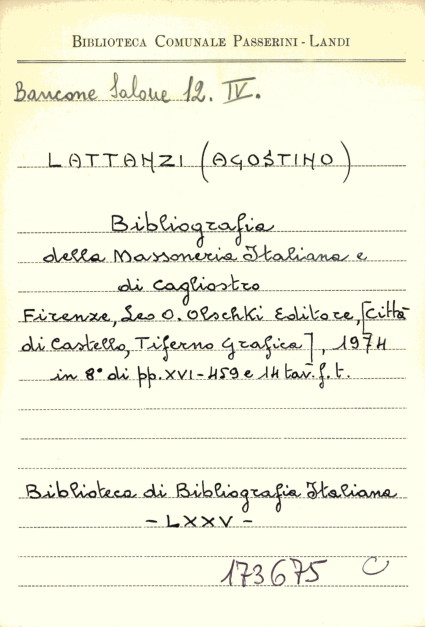 BIBLIOTECA COMUNALE PASSERINI - LANDI
Bancone Salone 12. IV.
LATTANZI (AGOSTINO)
Bibliografia
della Massoneria Italiana e
di Cagliostro
Firenze, Leo O. Olschki Editore, [Città
di Castello, Tiferno Grafica], 1974
in 8° di pp. XVI - 459 e 14 tav. f. t.
Biblioteca di Bibliografia Italiana
- LXXV -
173675 C